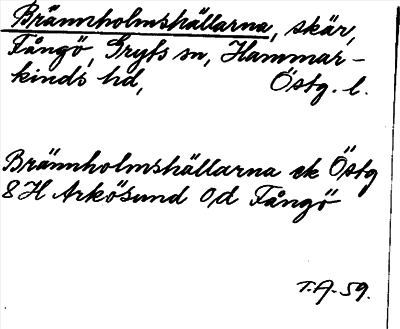 Brännholmshällarna, skär,
Fångö, Gryts sn, Hammar-
kinds hd, Östg. l.
Brännholmshällarna ek Östg
8H Arkösund 0d Fångö
T.A. 59.